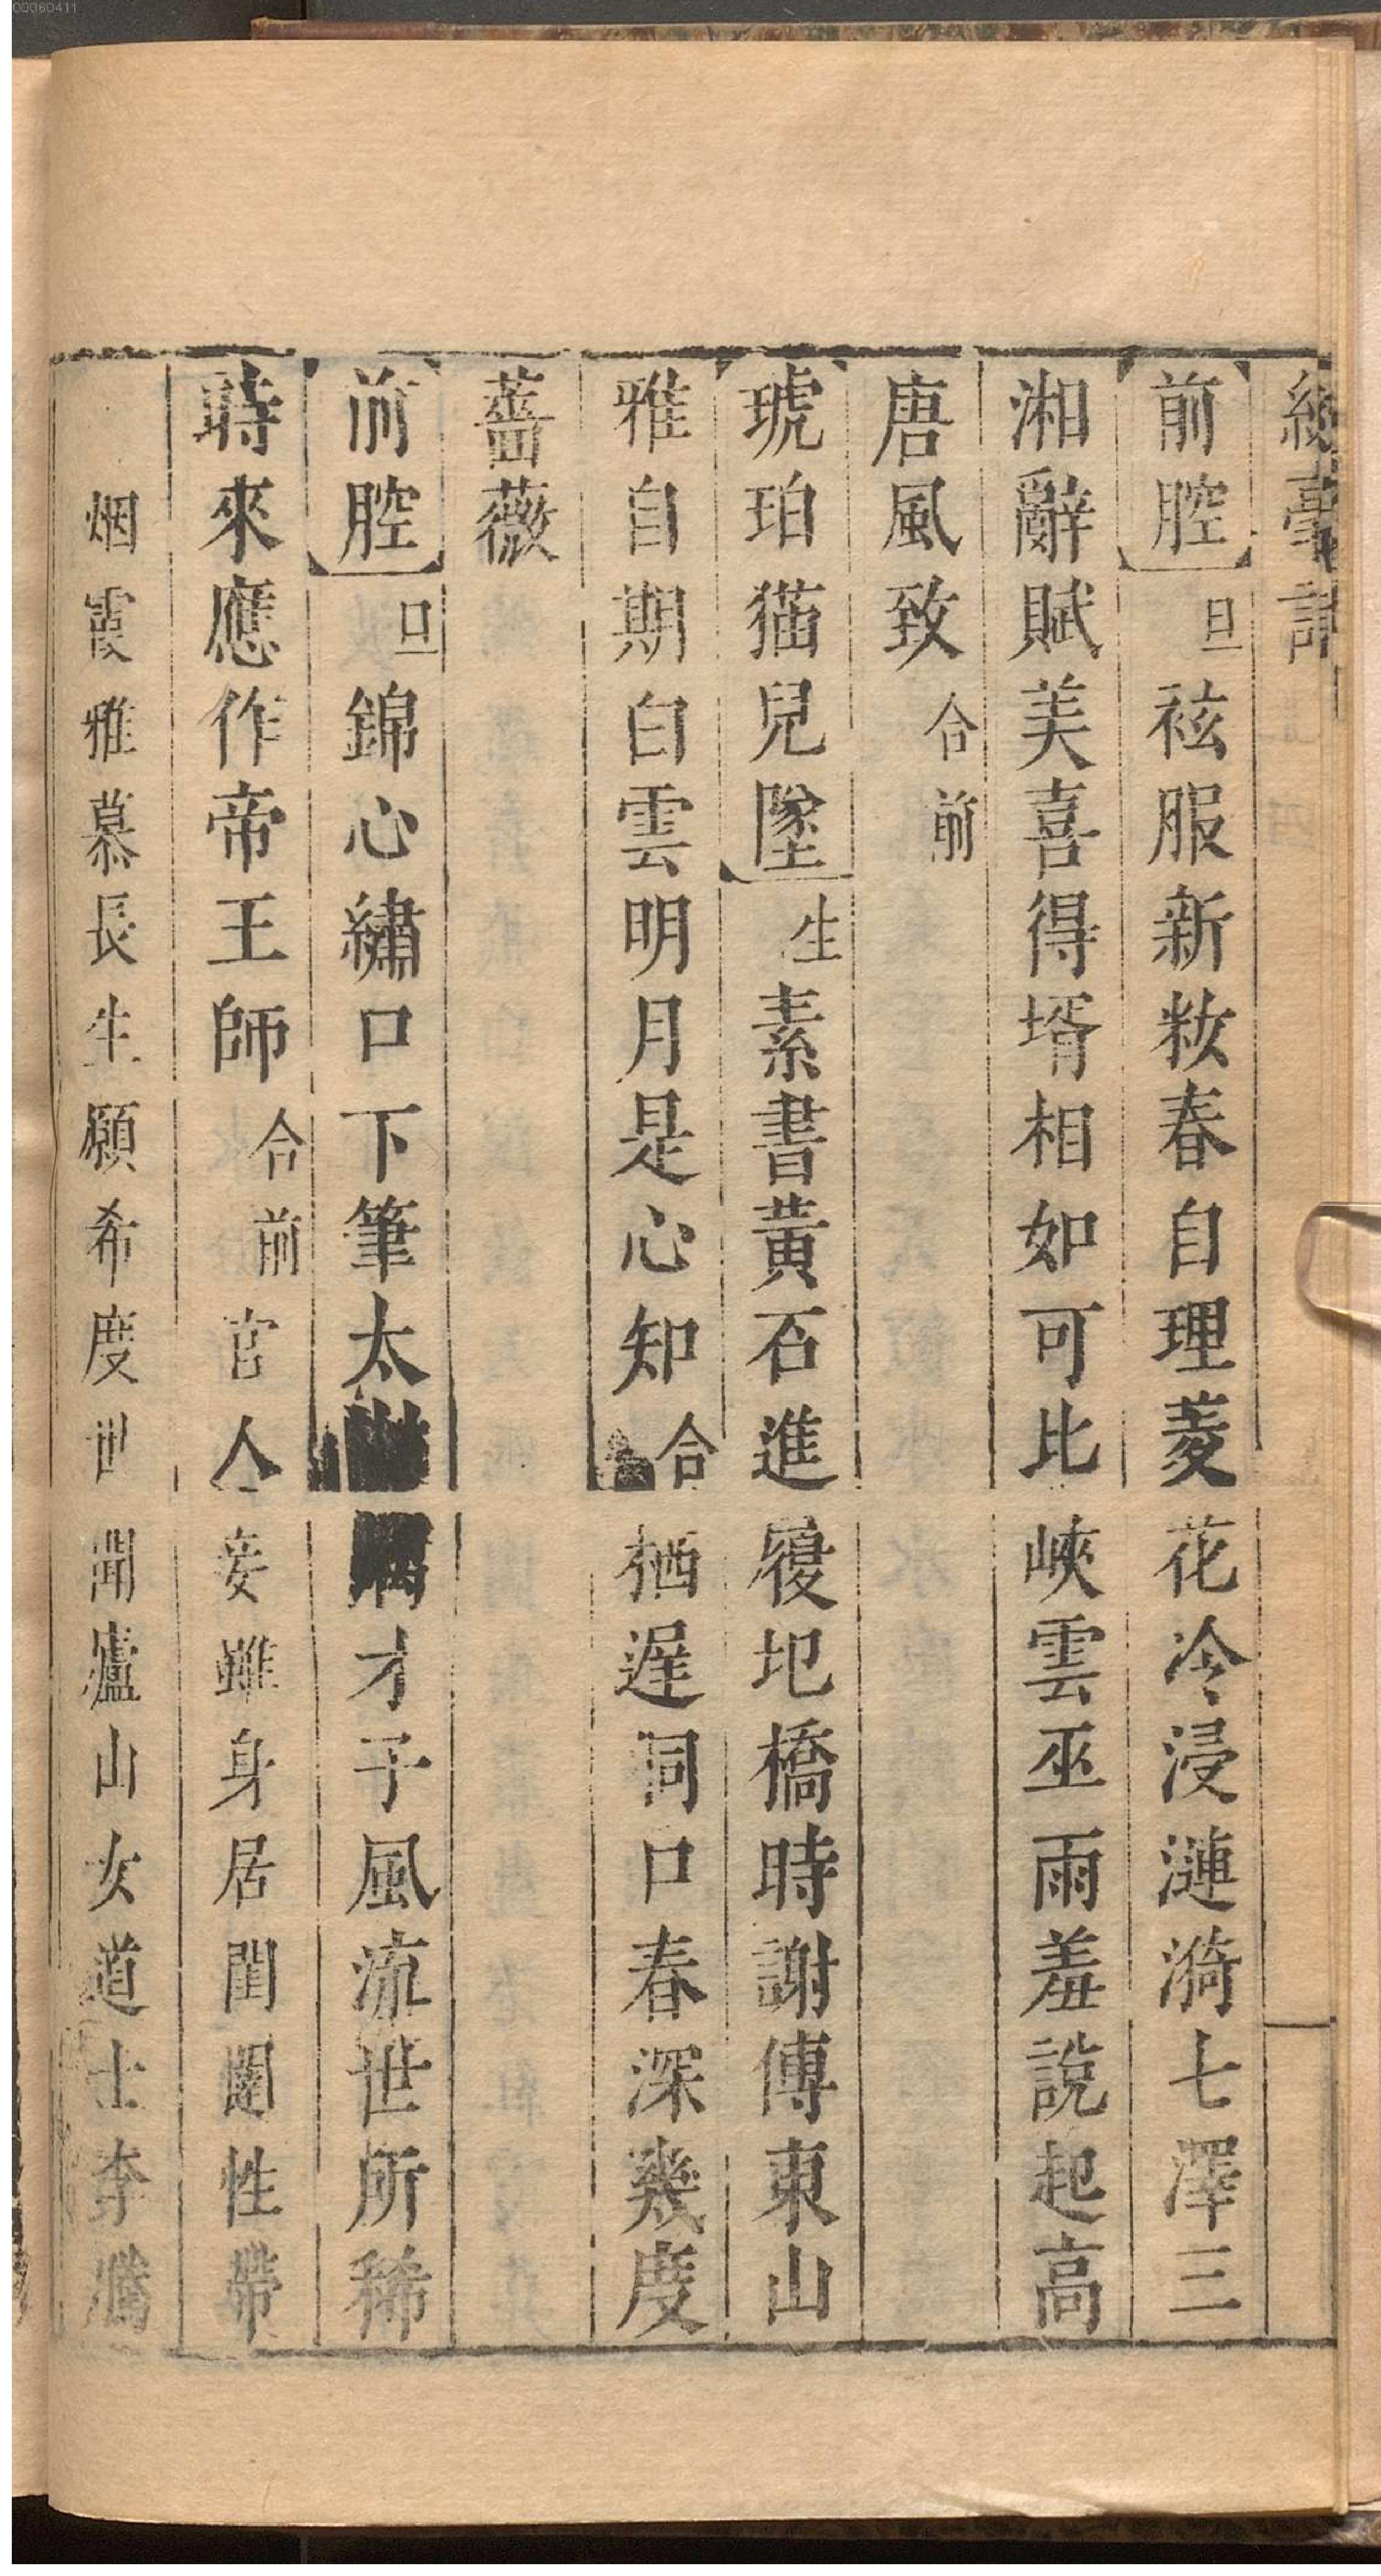 00060411
綵毫記
前腔旦袨服新妝春自理菱花冷浸漣漪七澤三
湘辭賦美喜得壻相如可比峽雲巫雨羞說起高
唐風致合前
琥珀猫兒墜生素書黃石進履圯橋時謝傅東山
雅自期白雲明月是心知合栖遲洞口春深幾度
薔薇
前腔旦錦心繡口下筆太才子風流世所稀
時來應作帝王師合前官人妾雖身居閨閫性帶
烟霞雅慕長生願希度世聞廬山女道士李騰